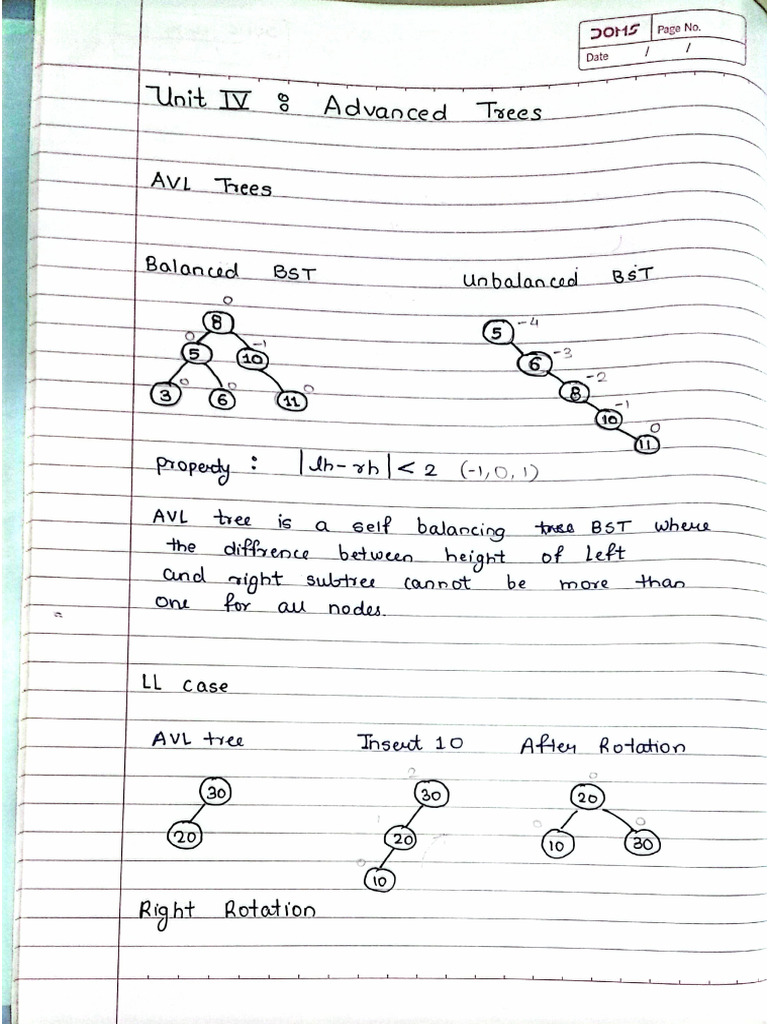 DOMS Page No.
Date / /
Unit IV : Advanced Trees
AVL Trees
Balanced BST Unbalanced BST
0
8
0 -1
5 10
0 0 0
3 6 11
5 -4
6 -3
8 -2
10 -1
0
11
property : |lh - rh| < 2 (-1, 0, 1)
AVL tree is a self balancing BST where
the diffrence between height of left
and right subtree cannot be more than
one for all nodes.
LL case
AVL tree Insert 10 After Rotation
30
20
2
30
1
20
0
10
0
20
0 0
10 30
Right Rotation